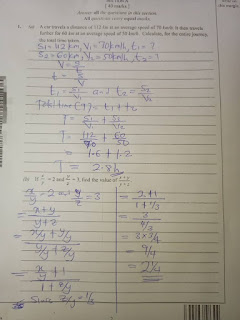 ( 40 marks )
Answer all the questions in this section.
All questions carry equal marks.
1. (a) A car travels a distance of 112 km at an average speed of 70 km/h. It then travels
further for 60 km at an average speed of 50 km/h. Calculate, for the entire journey,
the total time taken.
S1 = 112 km, V1 = 70km/h, t1 = ?
S2 = 60 km, V2 = 50km/h, t2 = ?
V = S/t
t = S/V
t1 = S1/V1 t2 = S2/V2
Total time (T) = t1 + t2
T = S1/V1 + S2/V2
T = 112/70 + 60/50
= 1.6 + 1.2
T = 2.8h
(b) If x/y = 2 and y/z = 3, find the value of x+y/y+z
x/y = 2 y/z = 3
= x+y/y+z
= x/y + y/y / y/y + z/y
= x/y + 1 / 1 + z/y
Since z/y = 1/3
= 2+1 / 1+1/3
= 3 / 4/3
= 3 x 3/4
= 9/4
= 2 1/4